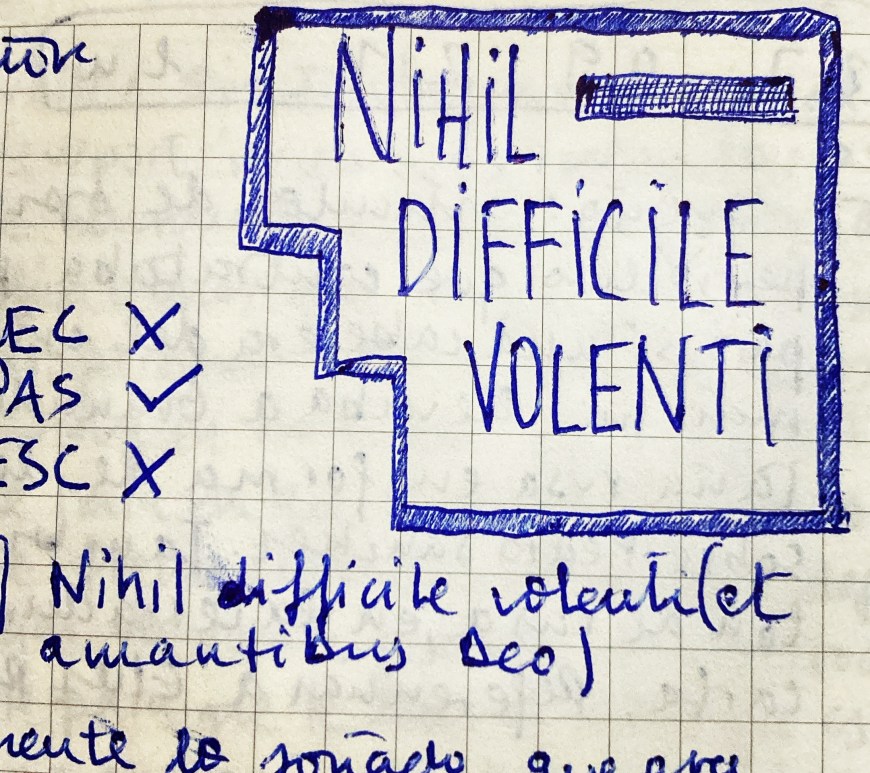 NiHiL
DiFFiCiLE
VOLENTi
EC X
PAS ✓
ESC X
Nihil difficile volenti (et
amantibus Deo)
mente lo soñado que